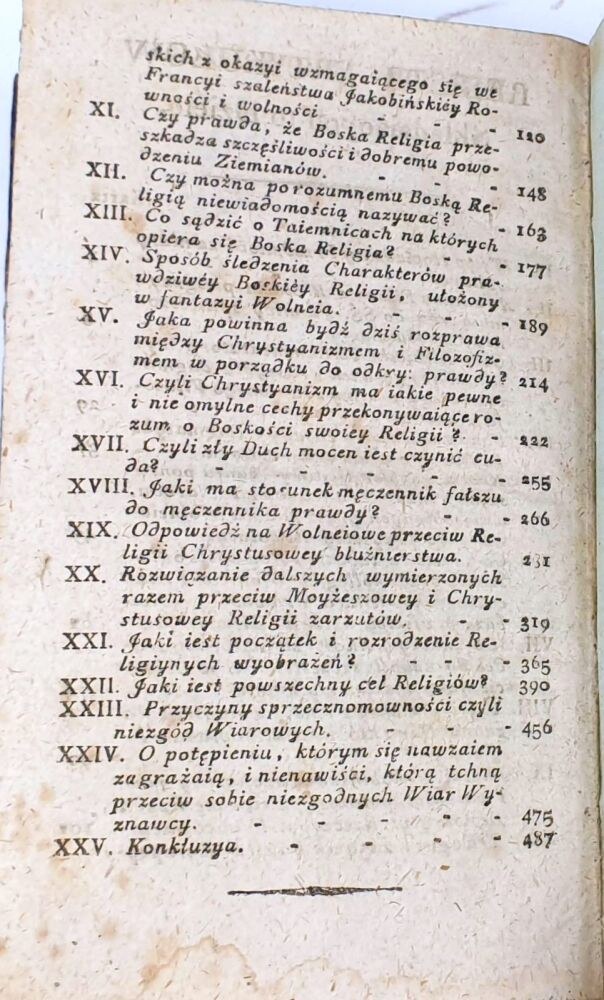 skich z okazyi wzmagaiącego się we
Francyi szaleństwa Jakobińskiéy Ro-
wności i wolności - - - 120
XI. Czy prawda, że Boska Religia prze-
szkadza szczęśliwości i dobremu powo-
dzeniu Ziemianów. - - - 148
XII. Czy można porozumnemu Boską Re-
ligią niewiadomością nazywać? - 163
XIII. Co sądzić o Taiemnicach na których
opiera się Boska Religia? - - 177
XIV. Sposób śledzenia Charakterów pra-
wdziwéy Boskiéy Religii, ułożony
w fantazyi Wolneia. - - - 189
XV. Jaka powinna bydź dziś rozprawa
między Chrystyanizmem i Filozofiz-
mem w porządku do odkry: prawdy? 214
XVI. Czyli Chrystyanizm ma iakie pewne
i nie omylne cechy przekonywaiące ro-
zum o Boskości swoiey Religii? - 222
XVII. Czyli zły Duch mocen iest czynić cu-
da? - - - - - 255
XVIII. Jaki ma stosunek męczennik fałszu
do męczennika prawdy? - - 266
XIX. Odpowiedź na Wolneiowe przeciw Re-
ligii Chrystusowey bluźnierstwa.
XX. Rozwiązanie dalszych wymierzonych
razem przeciw Moyżeszowey i Chry-
stusowey Religii zarzutów. - - 319
XXI. Jaki iest początek i rozrodzenie Re-
ligiynych wyobrażeń? - - - 365
XXII. Jaki iest powszechny cel Religiów? 390
XXIII. Przyczyny sprzecznomowności czyli
niezgód Wiarowych. - - - 456
XXIV. O potępieniu, którym się nawzaiem
zagrażaią, i nienawiści, którą tchną
przeciw sobie niezgodnych Wiar Wy-
znawcy. - - - - - 475
XXV. Konkluzya. - - - - 487